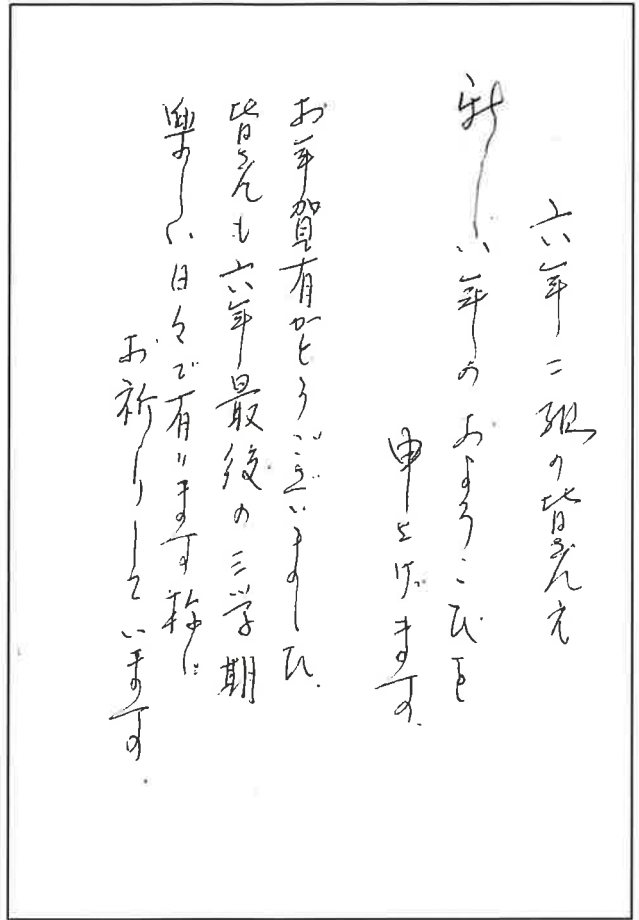 六年二組の皆さんえ
新しい年のおよろこびを
申上げます。
お年賀有がとうございました。
皆さんも六年最後の三学期
楽しい日々で有ります様に
お祈りしています。